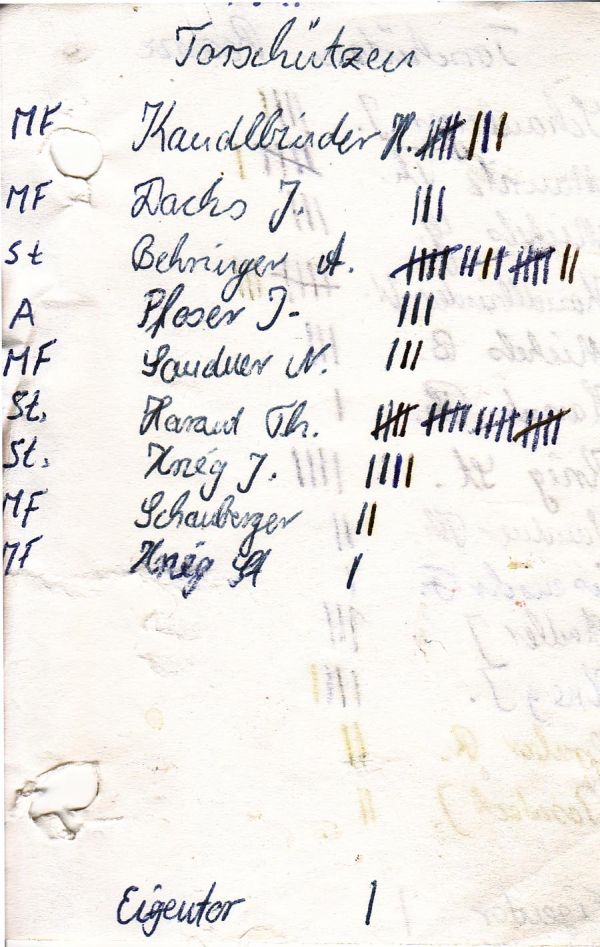 Torschützen
MF Kandlbinder H. |||| |||
MF Dachs J. |||
St Behringer A. |||| |||| |||| ||
A Pfoser J. |||
MF Sandner N. |||
St. Harant Th. |||| |||| |||| ||||
St. Krieg J. ||||
MF Schauberger ||
MF Krieg St |
Eigentor |